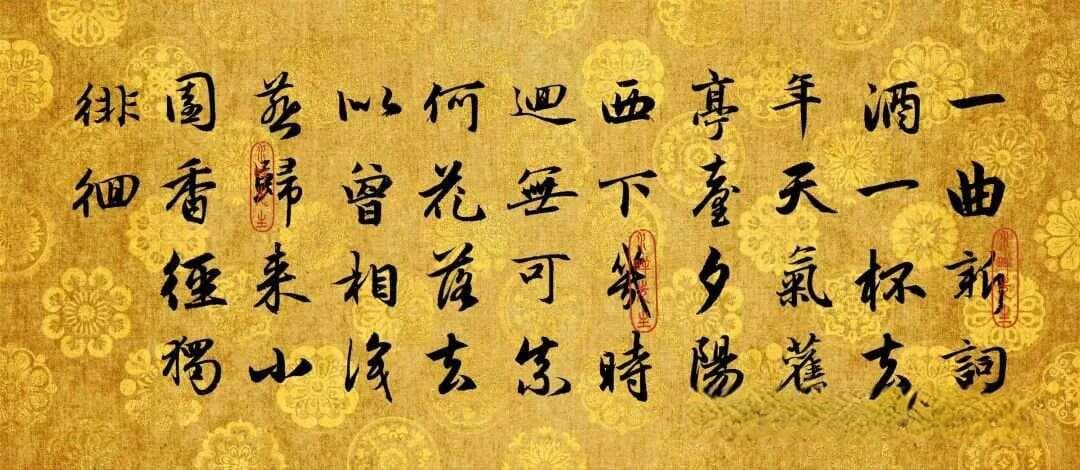 一曲新詞
酒一杯去
年天氣舊
亭臺夕陽
西下幾時
迴無可奈
何花落去
似曾相識
燕歸来小
園香徑獨
徘徊